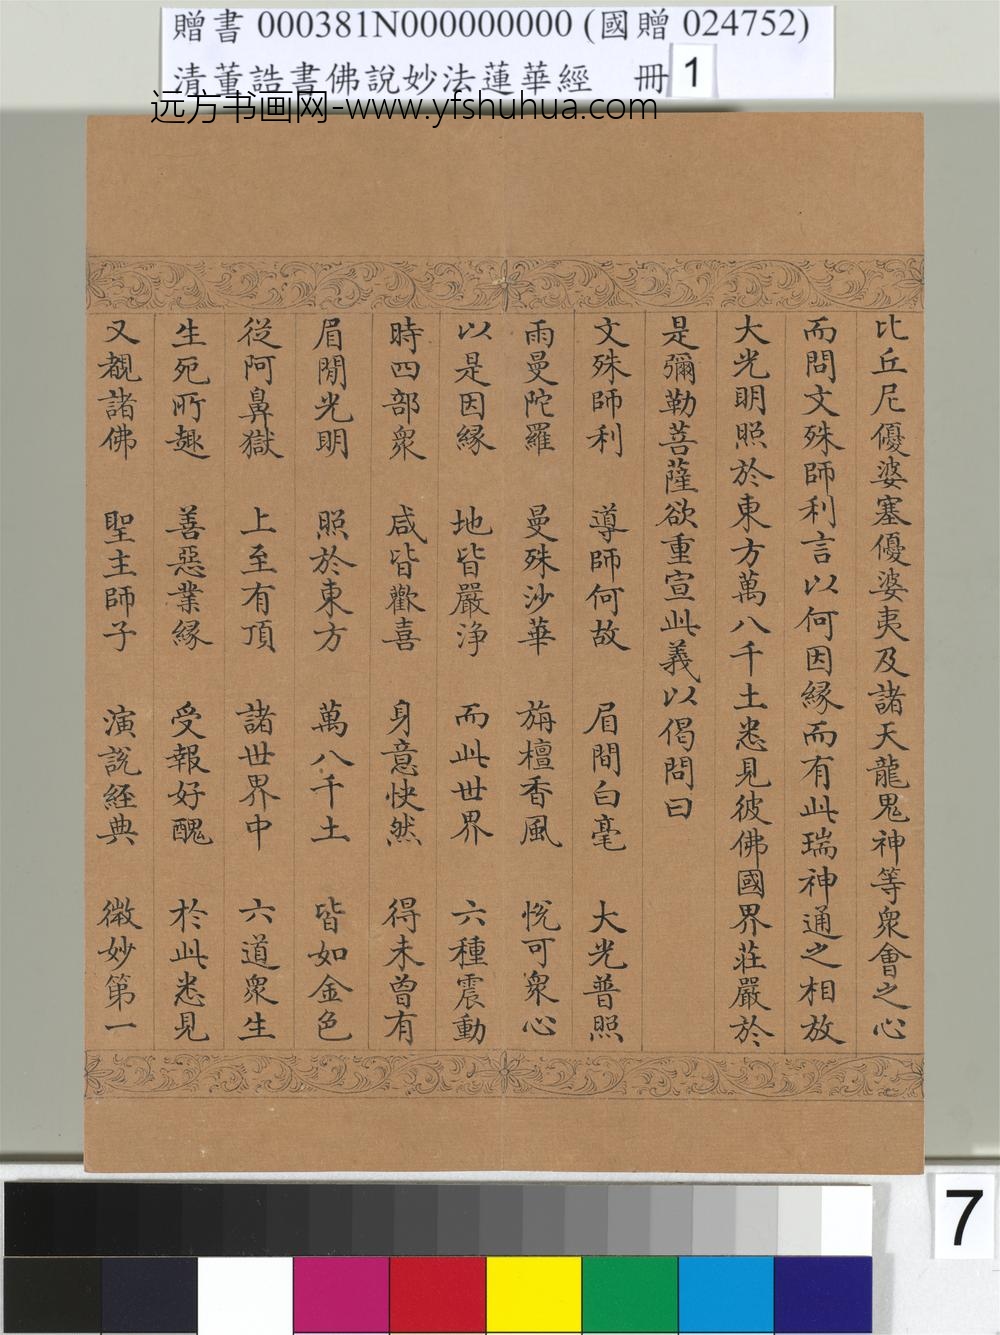 贈書 000381N000000000 (國贈 024752)
清董誥書佛說妙法蓮華經 冊 1
远方书画网-www.yfshuhua.com
比丘尼優婆塞優婆夷及諸天龍鬼神等衆會之心
而問文殊師利言以何因緣而有此瑞神通之相放
大光明照於東方萬八千土悉見彼佛國界莊嚴於
是彌勒菩薩欲重宣此義以偈問曰
文殊師利 導師何故 眉間白毫 大光普照
雨曼陀羅 曼殊沙華 旃檀香風 悅可衆心
以是因緣 地皆嚴淨 而此世界 六種震動
時四部衆 咸皆歡喜 身意快然 得未曾有
眉閒光明 照於東方 萬八千土 皆如金色
從阿鼻獄 上至有頂 諸世界中 六道衆生
生死所趣 善惡業緣 受報好醜 於此悉見
又覩諸佛 聖主師子 演說經典 微妙第一
7